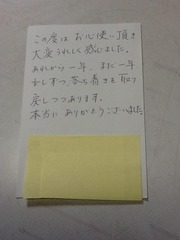 この度はお心使い頂き
大変うれしく感じました。
あれから一年、まだ一年
少しずつ、落ち着きを取り
戻しつつあります。
本当にありがとうございました